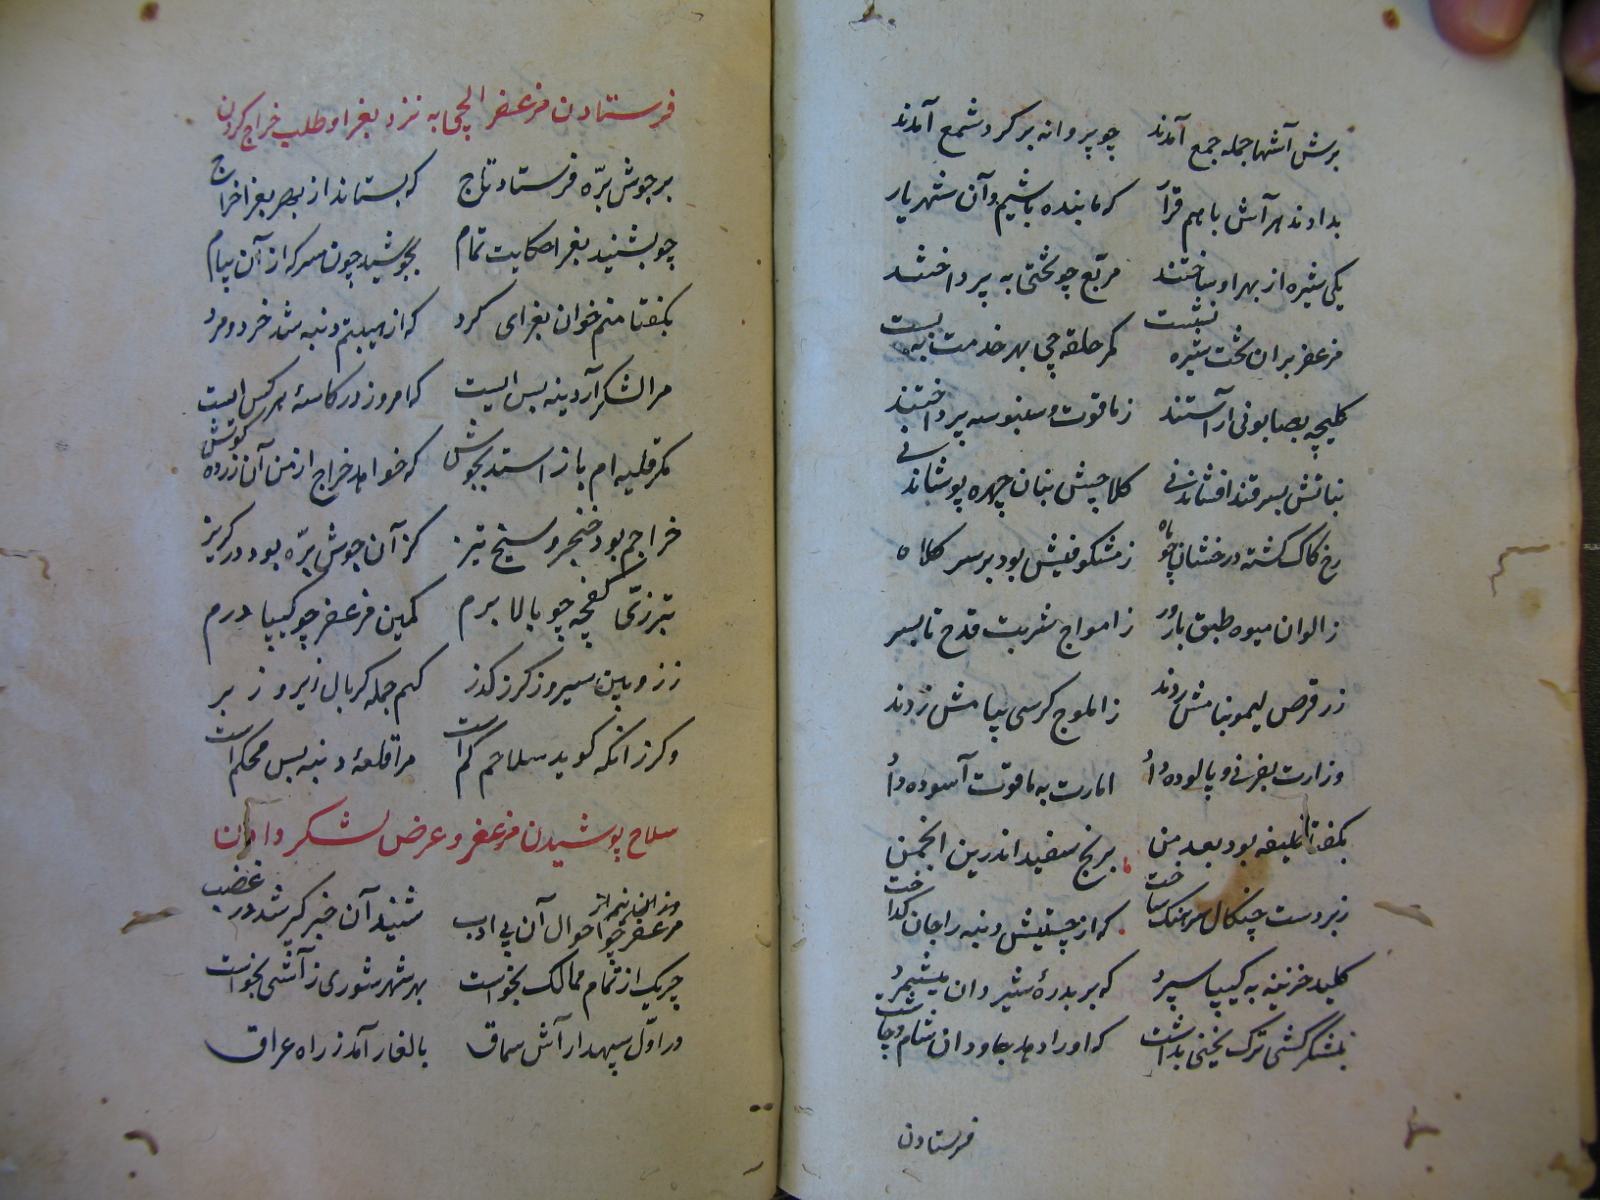 برش آشها جمله جمع آمدند چو پروانه بر گرد شمع آمدند
بدادند هر آش با هم قرار که ما بنده باشیم و آن شهریار
یکی شیره از بهر او ساختند مربع چو تختی به پرداختند
مزعفر بران تخت شیره نشست کمر حلقه چی بهر خدمت به بست
کلیچه بصابونی آراستند ز ماقوت و سنبوسه پرداختند
نباتش بسر قند افشاندنی کلاجیش بنان چهره پوشاندنی
رخ کاک گشته درخشان چو ماه ز مشکوفیش بود بر سر کلاه
ز الوان میوه طبق بارور ز امواج شربت قدح تا بسر
ز زر قرص لیمو بنامش زدند ز املوج کرسی بپامش زدند
وزارت بفرنی و پالوده داد امارت به ماقوت آسوده داد
بگفتا خلیفه بود بعد من برنج سفید اندرین انجمن
زبردست چنگال سرهنگ ساخت که از چستیش دنبه را جان گداخت
کلید خزینه به کیپا سپرد که بر بدرهٔ شیردان میشمرد
بشکرکشی ترک یخنی بداشت که او را دهد جاودان شام و چاشت
فرستادن
فرستادن مزعفر ایلچی به نزد بغرا و طلب خراج کردن
بر جوش برّه فرستاد تاج که بستاند از بهر بغرا خراج
چو بشنید بغرا حکایت تمام بجوشید چون سرکه از آن پیام
بگفتا منم خوان بغرای کرد که از هیبتم دنبه شد خرد و مرد
مرا لشکر آردینه بس است که امروز در کاسهٔ هر کس است
مگر قلیه ام باز استد بجوش که خواهد خراج از من آن زرده گوش
خراجم بود خنجر و سیخ تیز کز آن جوش برّه بود در گریز
تبرزی کفچه چو بالا برم کمین مزعفر چو کیپا درم
ز زوبین سیر و ز گرز گذر کنم جمله گربال زیر و زبر
و گر زانکه گوید سلاحم کم است مرا قلعهٔ دنبه بس محکم است
سلاح پوشیدن مزعفر و عرض لشکر دادن
مزعفر چو احوال آن بی ادب شنید آن خبر گیر شد در غضب
چریک از تمام ممالک بخواست بهر شهر شوری ز آشی بخواست
در اوّل سپهدار آش سماق بالغار آمد ز راه عراق